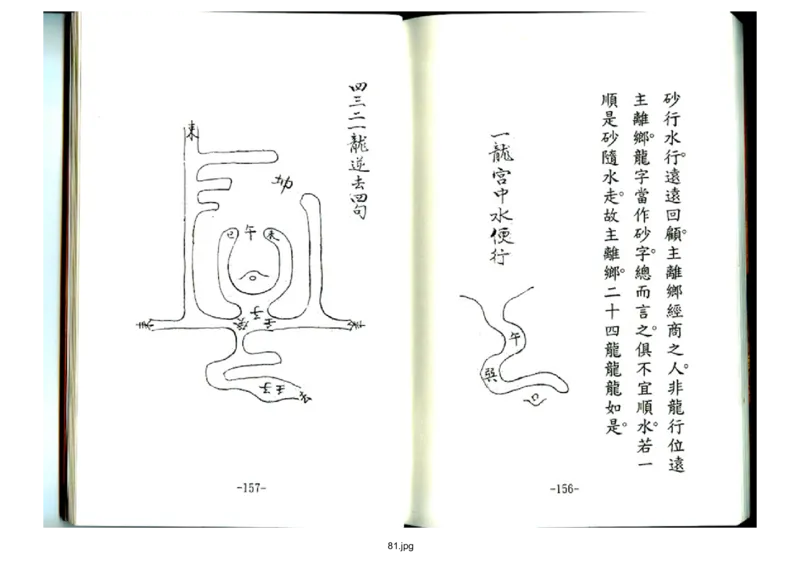 砂行水行。遠遠回顧。主離鄉經商之人。非龍行位遠
主離鄉。龍字當作砂字。總而言之。俱不宜順水。若一
順是砂隨水走。故主離鄉。二十四龍龍龍如是。
一龍宮中水便行
午
巽
-156-
四三二一龍逆去四句
東
坤
巳
午
未
癸
壬子
壬子
-157-
81.jpg